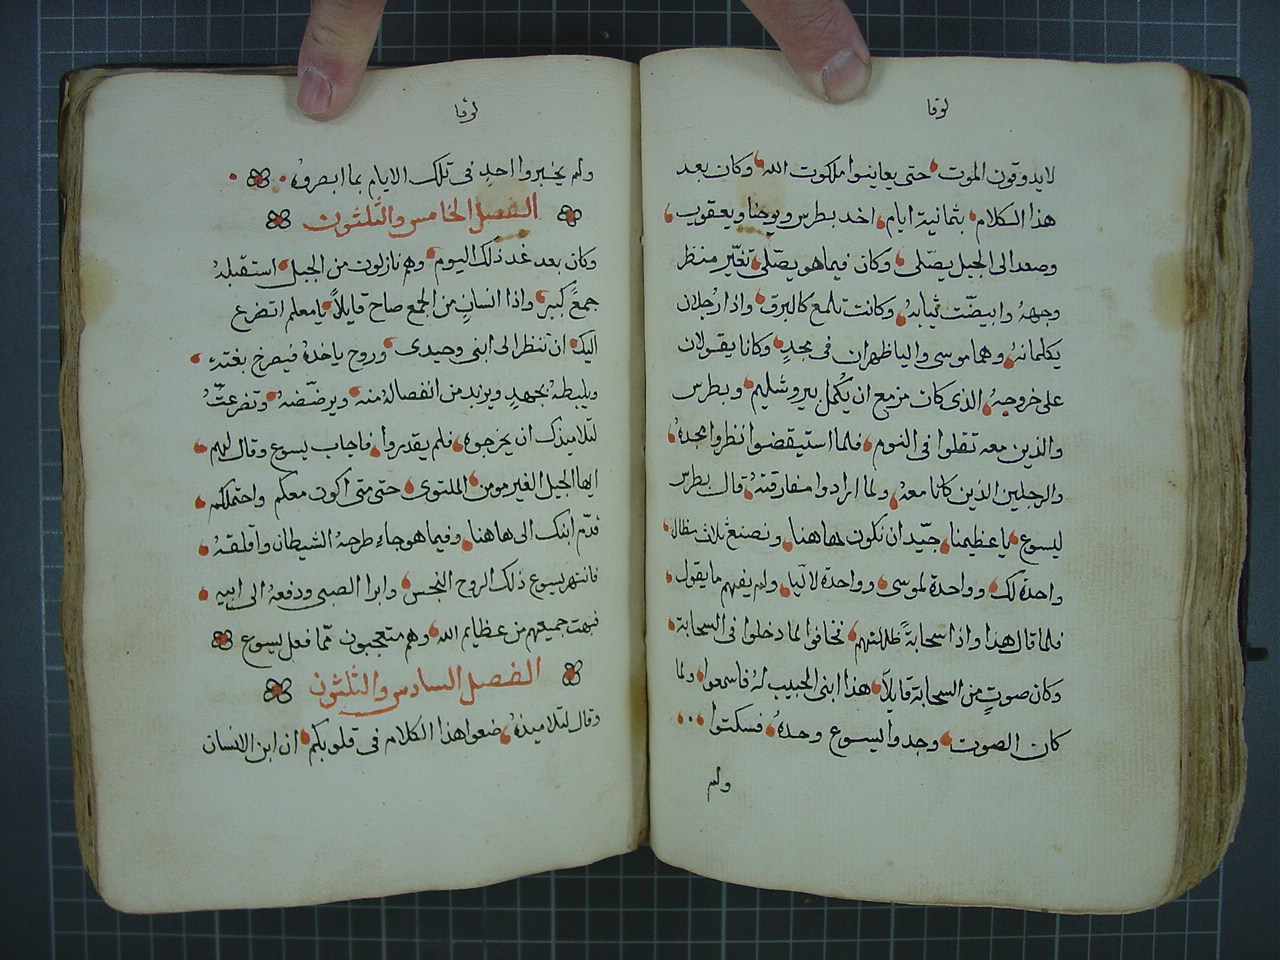 لوقا
لايدوقون الموت حتى يعاينوا ملكوت الله وكان بعد
هذا الكلام بثمانية ايام اخد بطرس ويوحنا ويعقوب
وصعد الى الجبل يصلى وكان فيما هو يصلى تغيّر منظر
وجههُ وابيضّت ثيابهُ وكانت تلمع كالبرق واذا رجلان
يكلمانهُ وهما موسى واليا ظهران فى مجدٍ وكانا يقولان
على خروجهُ الذى كان مزمع ان يكمل بيروشليم وبطرس
والذين معه تقلوا فى النوم فلما استيقضوا نظروا مجدهُ
والرجلين الذين كانا معهُ ولما ارادوا مفارقتهُ قال بطرس
ليسوع يا عظيمنا جيّد ان نكون هاهنا ونصنع ثلاث مظال
واحدة لك وواحدة لموسى وواحدة لاليا ولم يفهم ما يقول
فلما قال هذا واذا سحابةً ظللتهم فخافوا لما دخلوا فى السحابة
وكان صوتٍ من السحابة قايلاً هذا ابنى الحبيب لهُ فاسمعوا ولما
كان الصوت وجدوا ليسوع وحدهُ فسكتوا
ولم
لوقا
ولم يخبروا احدٍ فى تلك الايام بما ابصروهُ
الفصل الخامس والثلثون
وكان بعد غد ذلك اليوم وهم نازلون من الجبل استقبلهُ
جمعً كبير واذا انسانٍ من الجمع صاح قايلاً يا معلم اتضرع
اليك ان تنظر الى ابنى وحيدى وروح ياخدهُ فيصرخ بغتة
ويلبطهُ بجهدٍ ويزبد من انفصالهُ منه ويرضّضهُ وتضرعتُ
لتلاميذك ان يخرجوه فلم يقدروا فاجاب يسوع وقال لهم
ايها الجيل الغير مومن الملتوى حتى متى اكون معكم واحتملكم
قدّم ابنك الى هاهنا وفيما هو جاءِ طرحهُ الشيطان واقلقهُ
فانتهر يسوع ذلك الروح النجس وابرا الصبى ودفعهُ الى ابيه
فبهت جميعهم من عظايم الله وهم متعجبون ممّا فعل يسوع
الفصل السادس والثلثون
وقال لتلاميذهُ ضعوا هذا الكلام فى قلوبكم ان ابن الانسان